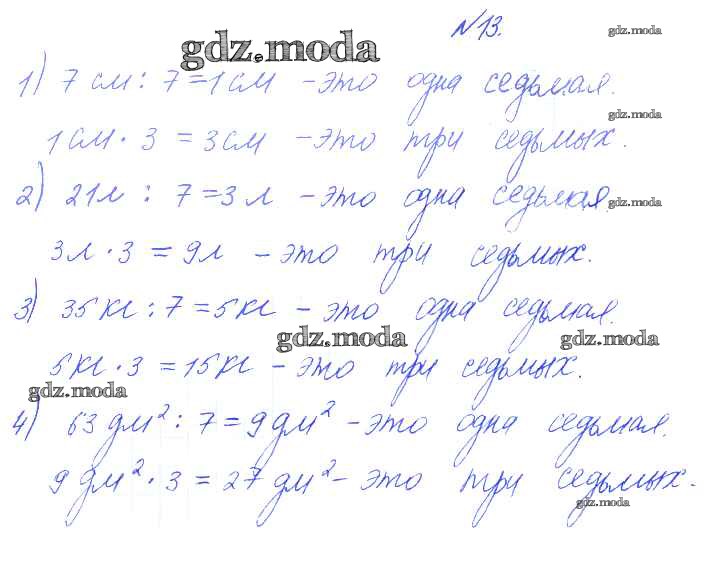 №13.
gdz.moda
gdz.moda
1) 7 см : 7 = 1 см - это одна седьмая.
gdz.moda
1 см · 3 = 3 см - это три седьмых.
2) 21 л : 7 = 3 л - это одна седьмая
gdz.moda
3 л · 3 = 9 л - это три седьмых.
3) 35 кг : 7 = 5 кг - это одна седьмая.
gdz.moda
gdz.moda
5 кг · 3 = 15 кг - это три седьмых.
gdz.moda
4) 63 дм² : 7 = 9 дм² - это одна седьмая.
9 дм² · 3 = 27 дм² - это три седьмых.
gdz.moda